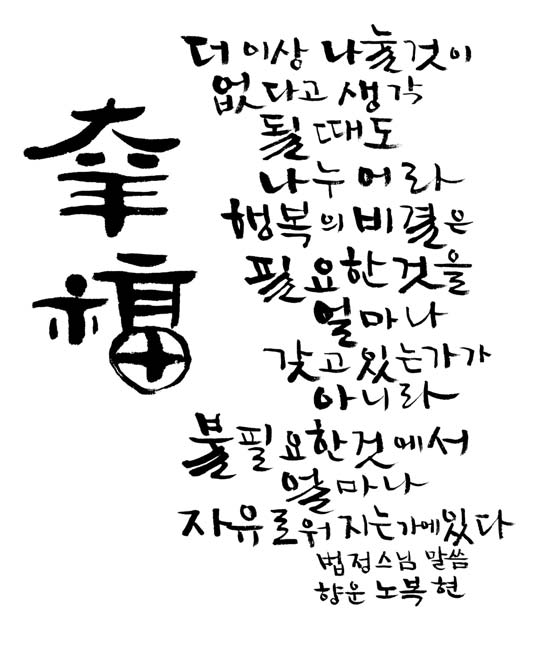 幸福
더 이상 나눌것이
없다고 생각
될때도
나누어라
행복의 비결은
필요한것을
얼마나
갖고 있는가가
아니라
불필요한것에서
얼마나
자유로워 지는가에있다
법정스님 말씀
향운 노복현